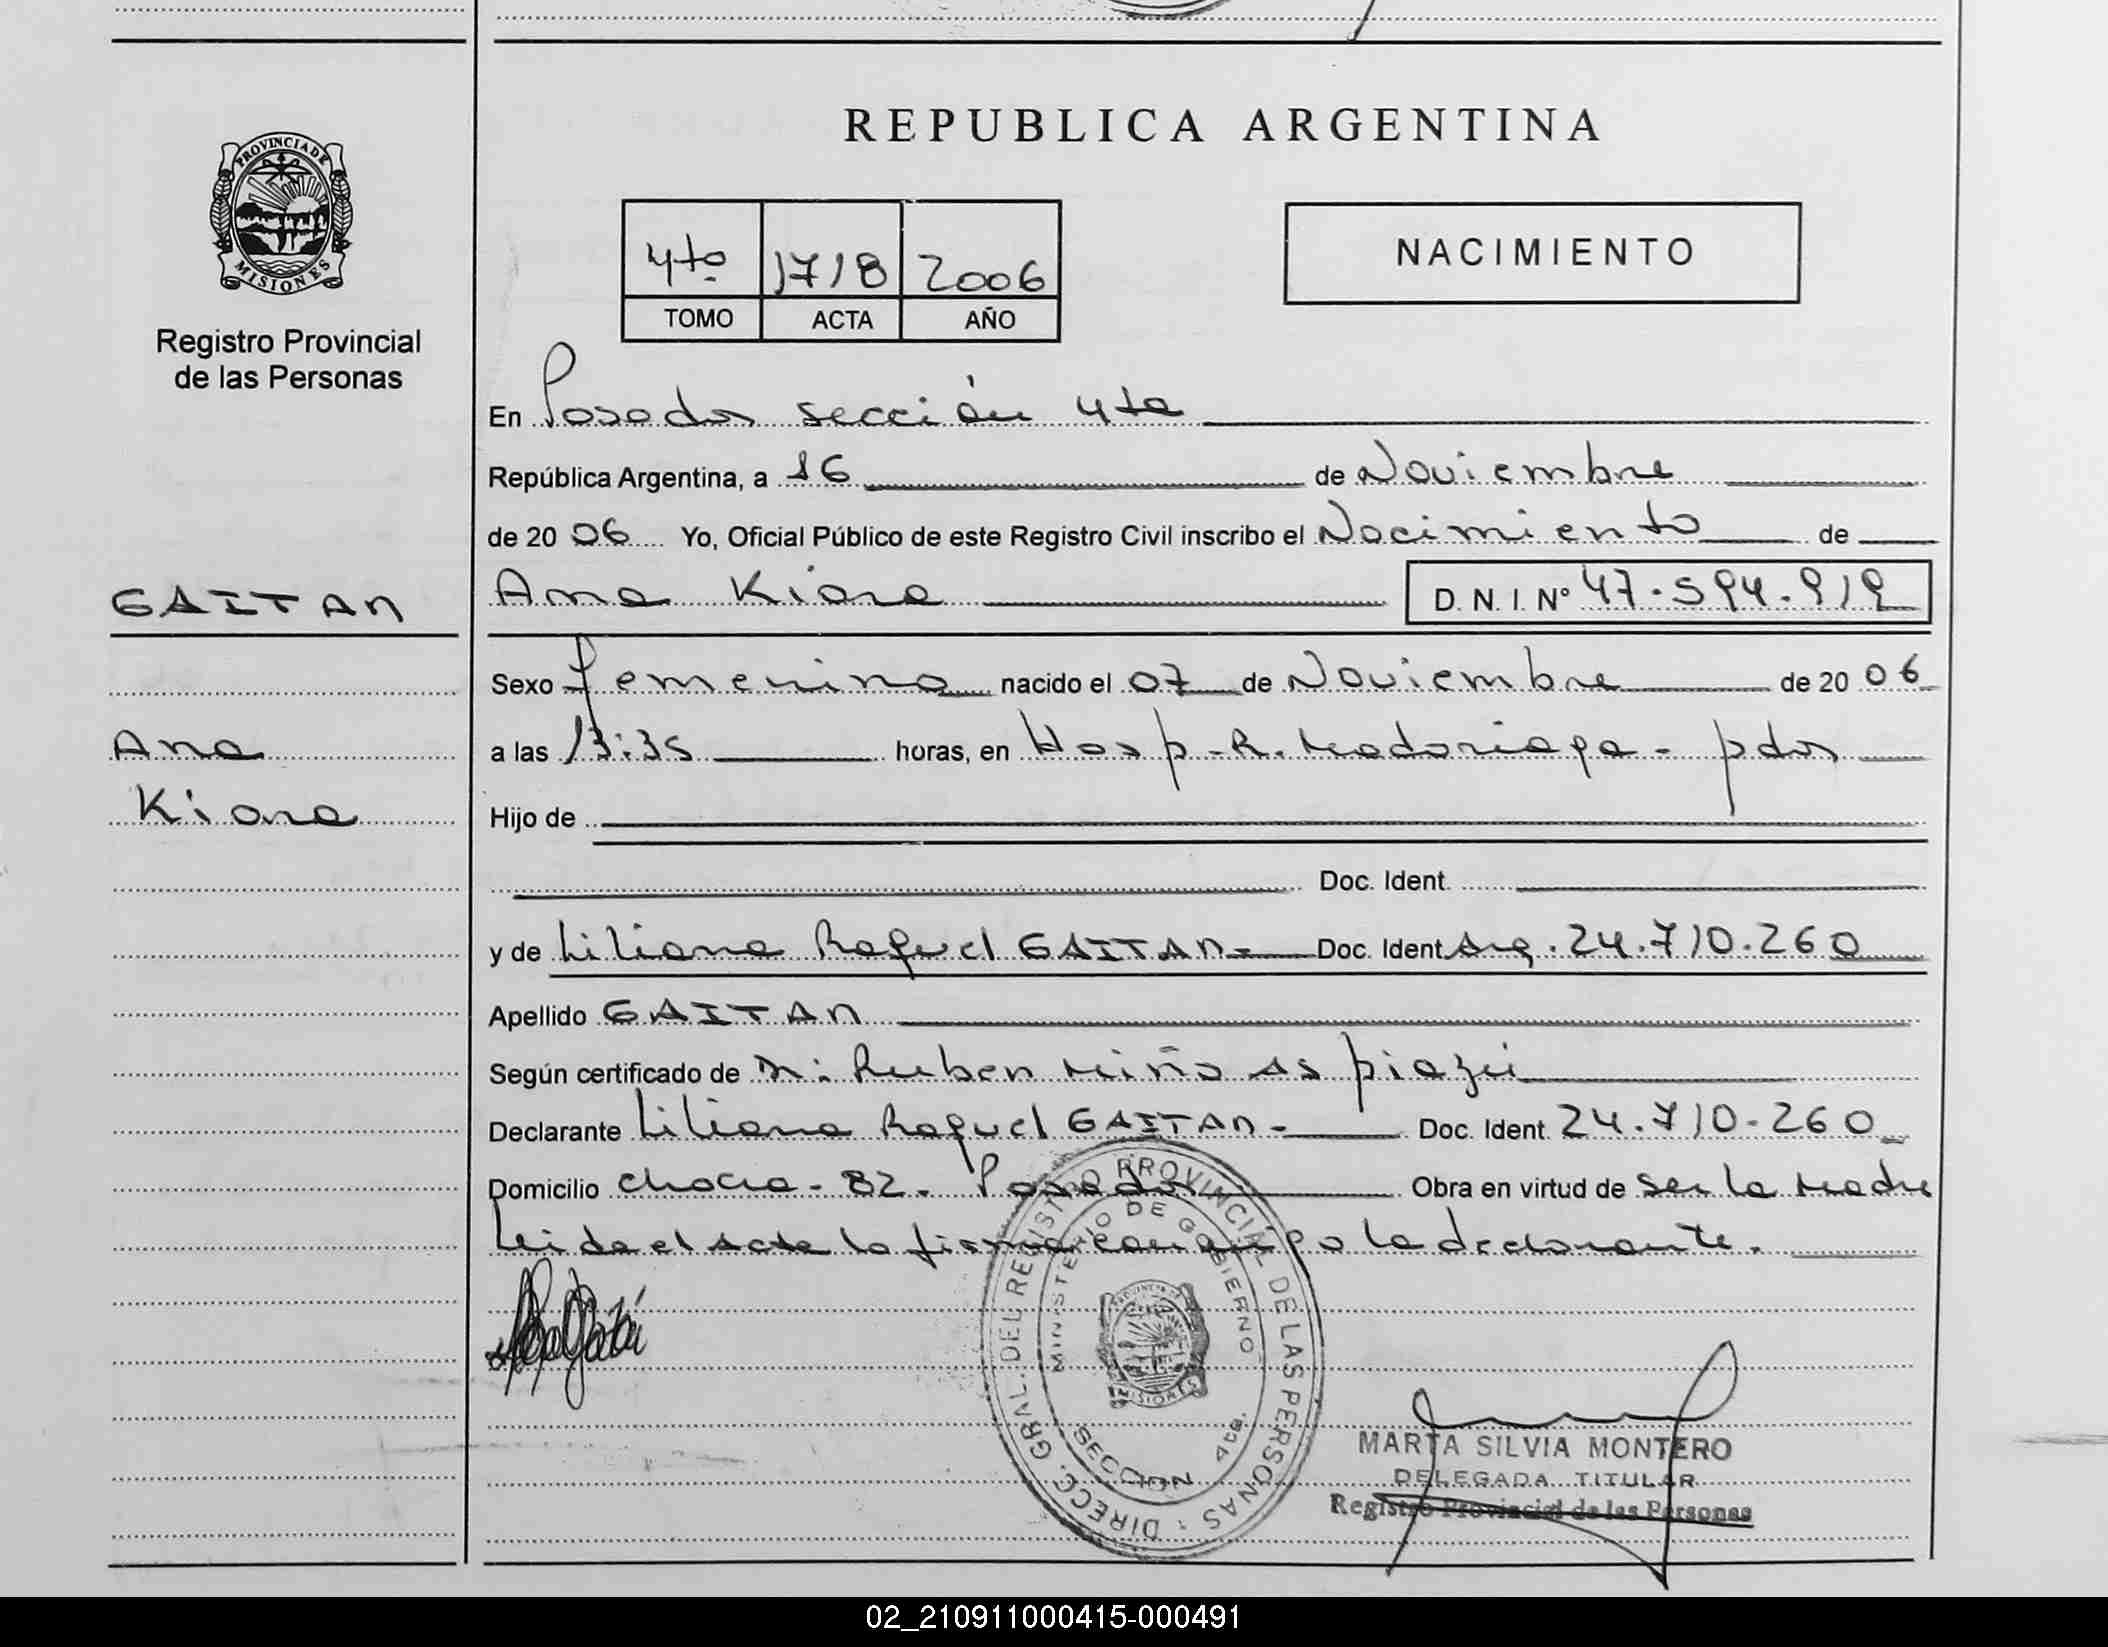 REPUBLICA ARGENTINA
PROVINCIA DE
MISIONES
Registro Provincial
de las Personas
NACIMIENTO
4to 1718 2006
TOMO ACTA AÑO
En Posadas sección 4ta
República Argentina, a 16 de Noviembre
de 20 06 Yo, Oficial Público de este Registro Civil inscribo el Nacimiento de
GAITAN
Ana Kiara D. N. I. Nº 47.594.919
Sexo femenino nacido el 07 de Noviembre de 20 06
Ana
a las 13:35 horas, en Hosp. R. Madariaga - pdas
Kiara
Hijo de
Doc. Ident.
y de Liliana Raquel GAITAN - Doc. Ident. Arg. 24.710.260
Apellido GAITAN
Según certificado de M: Ruben Miño
Declarante Liliana Raquel GAITAN - Doc. Ident. 24.710.260
Domicilio chacra - 82. Posadas Obra en virtud de ser la madre
Leida el acta la firma conmigo la declarante.
DIRECC. GRAL. DEL REGISTRO PROVINCIAL DE LAS PERSONAS
MINISTERIO DE GOBIERNO
SECCION 4ta.
MARTA SILVIA MONTERO
DELEGADA TITULAR
Registro Provincial de las Personas
02_210911000415-000491